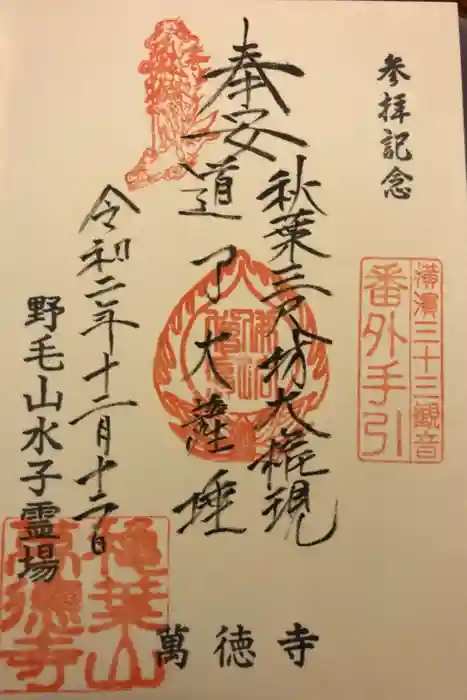 参拝記念
横濱三十三観音
番外手引
奉安
秋葉三尺坊大権現
道了大薩埵
令和二年十二月十六日
野毛山水子霊場
萬徳寺
萬德寺